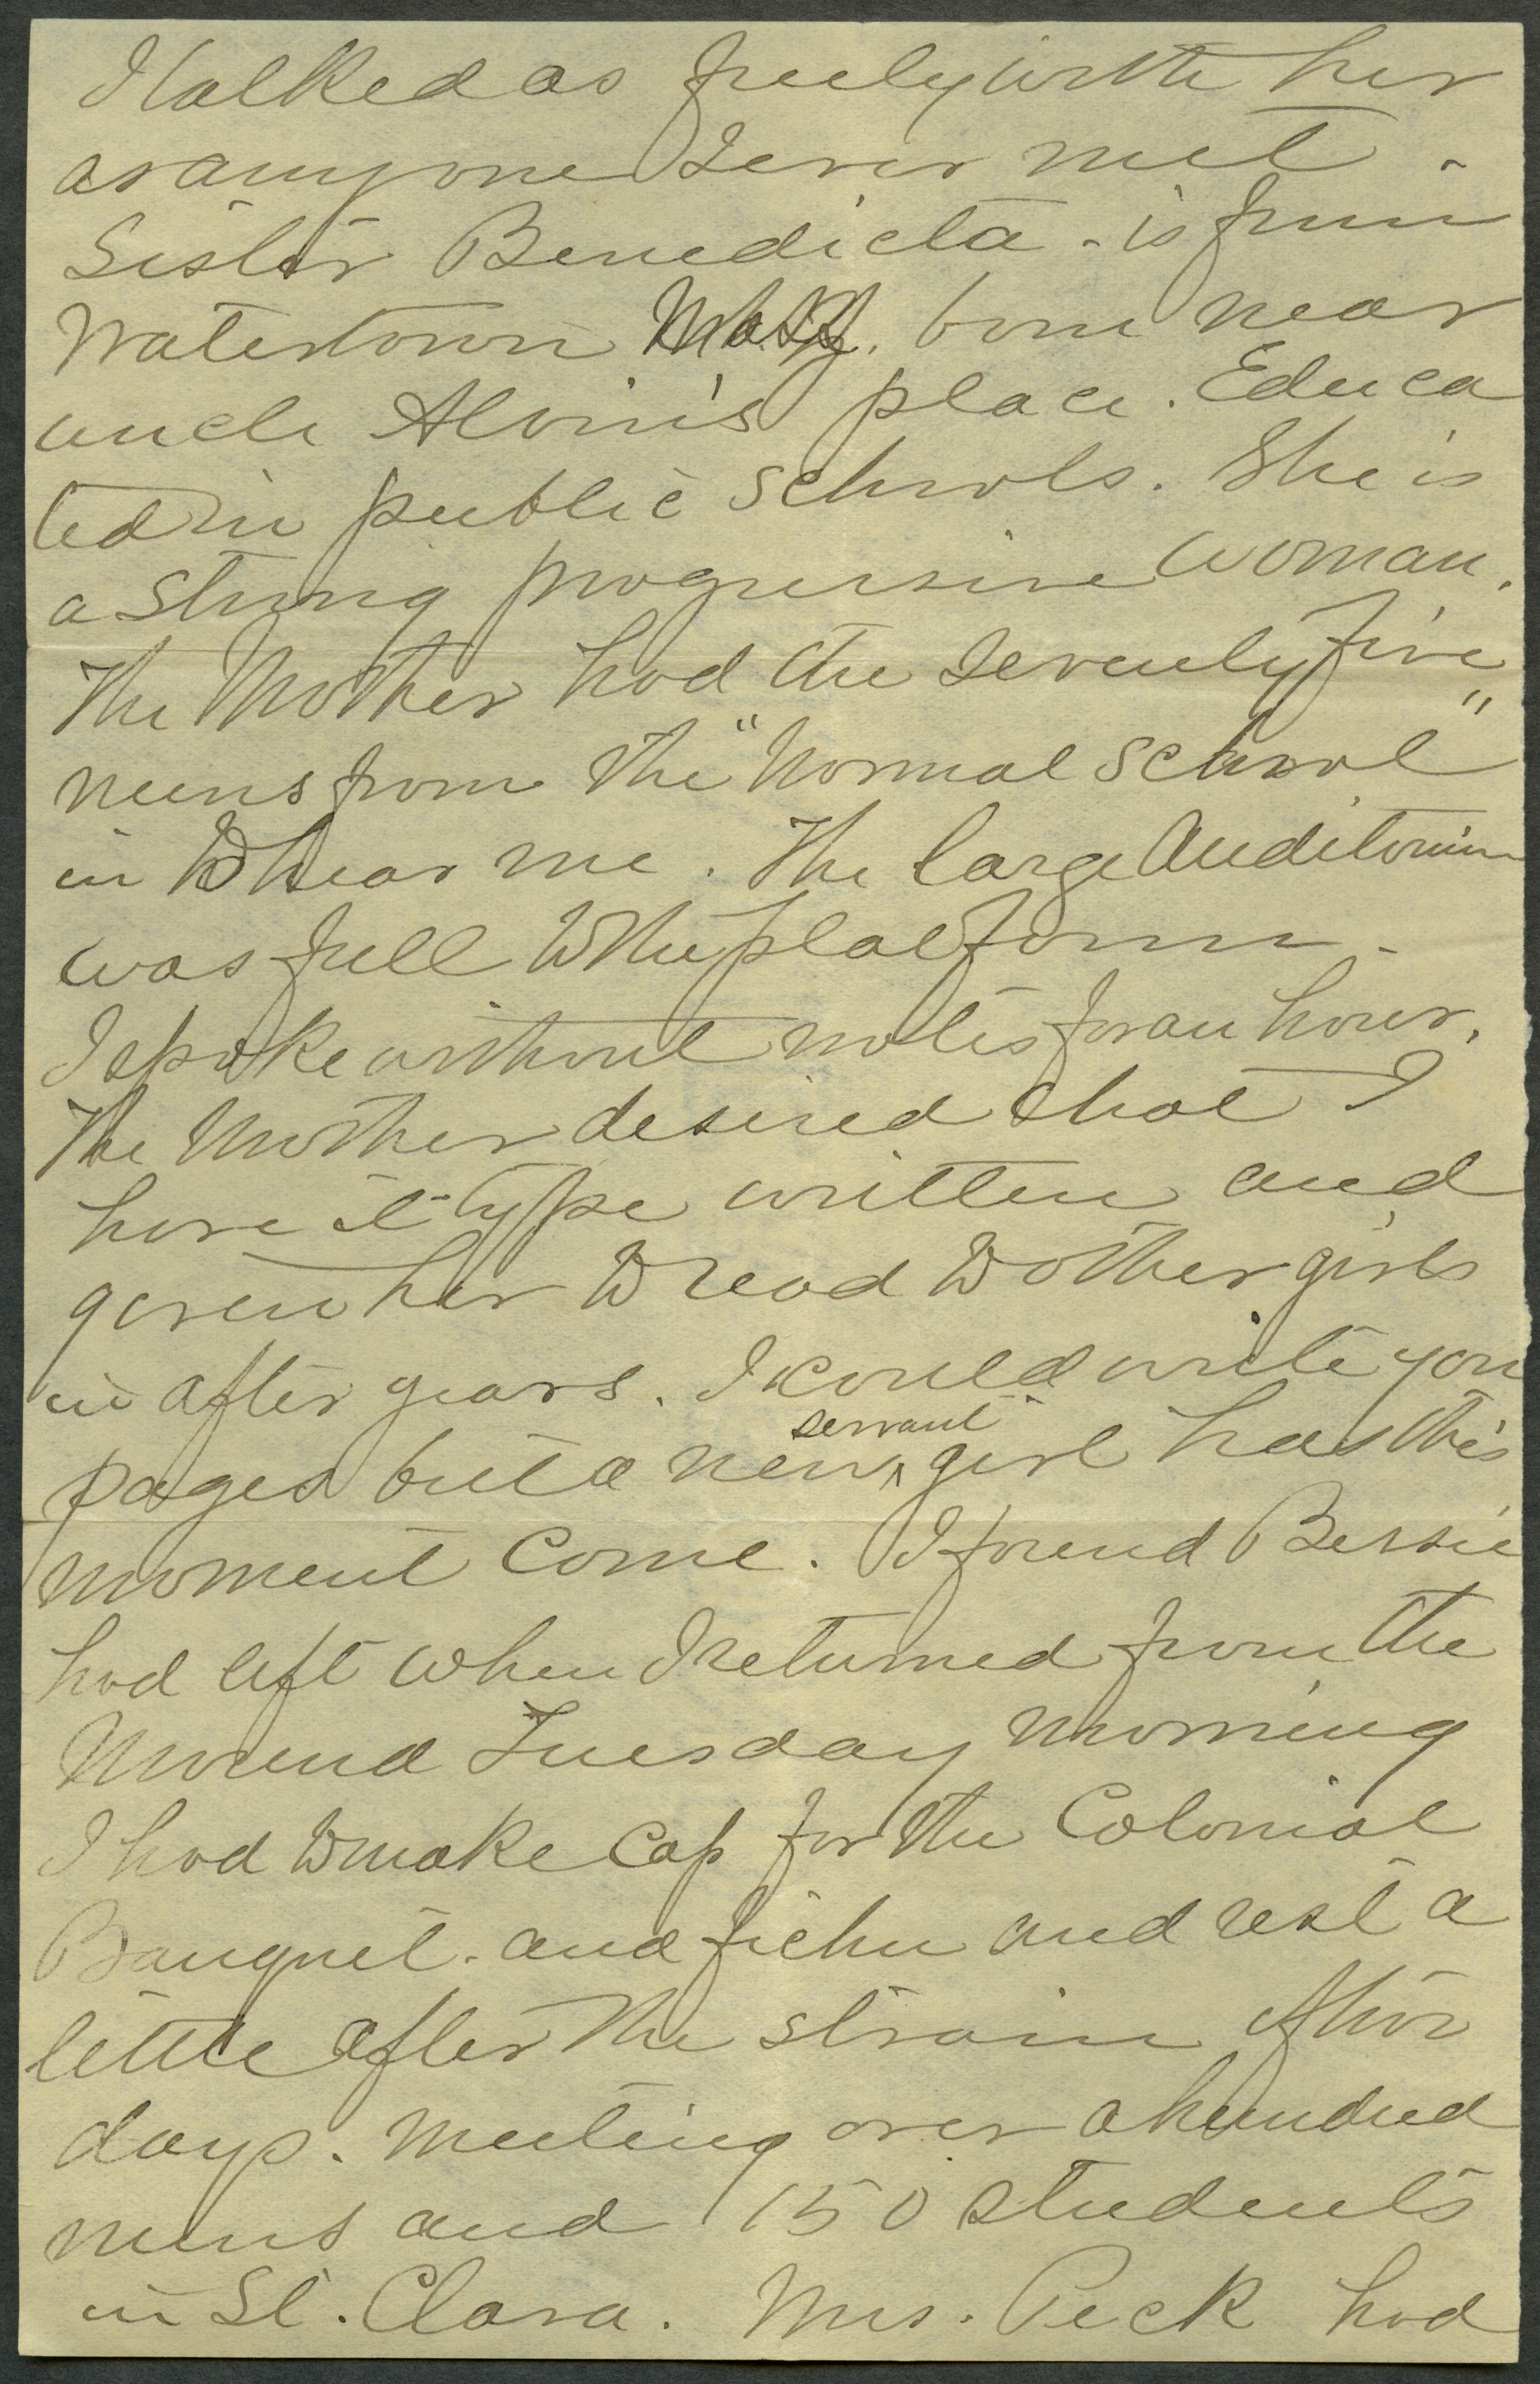 I talked as freely with her
as anyone I ever met -
Sister Benedicta - is from
Watertown Mass. born near
uncle Alvin's place. Educa
ted in public schools. She is
a strong progressive woman.
The Mother had the seventy five
nuns from the "Normal School"
in to hear me. The large Auditorium
was full to the platform -
I spoke without notes for an hour.
The Mother desired that I
have it type written and
given her to read to other girls
in after years. I could write you
pages but a new servant girl has this
moment come. I found Bessie
had left when I returned from the
Mound Tuesday morning
I had to make cap for the Colonial
Banquet - and fichu and rest a
little after the strain of two
days. Meeting over a hundred
nuns and 150 students
in St. Clara. Mrs. Peck had